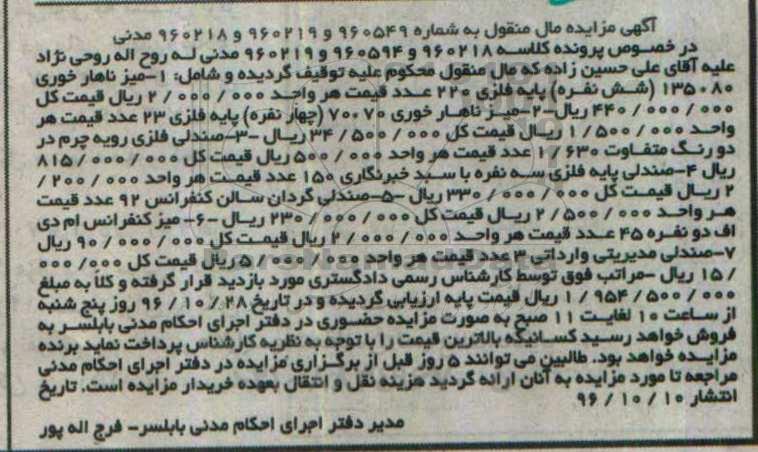 آگهی مزایده مال منقول به شماره ۹۶۰۵۴۹ و ۹۶۰۲۱۹ و ۹۶۰۲۱۸ مدنی
در خصوص پرونده کلاسه ۹۶۰۲۱۸ و ۹۶۰۵۹۴ و ۹۶۰۲۱۹ مدنی لـه روح اله روحی نژاد
علیه آقای علی حسین زاده که مال منقول محکوم علیه توقیف گردیده و شامل: ۱-میز ناهار خوری
۱۳۵۰۸۰ (شـش نفـره) پایه فلزی ۲۲۰ عـدد قیمت هر واحـد ۰۰۰ / ۰۰۰ / ۲ ریال قیمت کل
۰۰۰ / ۰۰۰ / ۴۴۰ ریـال -۲-میـز ناهـار خوری ۷۰.۷۰ (چهار نفره) پایه فلزی ۲۳ عدد قیمت هر
واحـد ۰۰۰ / ۵۰۰ / ۱ ریـال قیمت کل ۰۰۰ / ۵۰۰ / ۳۴ ریـال -۳-صندلی فلزی رویه چرم در
دو رنـگ متفـاوت ۱/۶۳۰ عدد قیمت هر واحد ۰۰۰ / ۵۰۰ ریال قیمت کل ۰۰۰ / ۰۰۰ / ۸۱۵
ریال ۴-صندلی پایه فلزی سـه نفره با سـبد خبرنگاری ۱۵۰ عدد قیمـت هر واحد ۰۰۰ / ۲۰۰ /
۲ ریـال قیمـت کل ۰۰۰ / ۰۰۰ / ۳۳۰ ریال -۵-صندلی گردان سـالن کنفرانس ۹۲ عدد قیمت
هـر واحـد ۰۰۰ / ۵۰۰ / ۲ ریـال قیمـت کل ۰۰۰ / ۰۰۰ / ۲۳۰ ریـال -۶- میز کنفرانس ام دی
اف دو نفـره ۴۵ عـدد قیمت هر واحـد ۰۰۰ / ۰۰۰ / ۲ ریال قیمـت کل ۰۰۰ / ۰۰۰ / ۹۰ ریال
۷-صندلی مدیریتی وارداتی ۳ عدد قیمت هر واحد ۰۰۰ / ۰۰۰ / ۵ ریال قیمت کل ۰۰۰ / ۰۰۰
/ ۱۵ ریال -مراتب فوق توسط کارشناس رسمی دادگستری مورد بازدید قرار گرفته و کلاً به مبلغ
۰۰۰ / ۵۰۰ / ۹۵۴ / ۱ ریال قیمت پایه ارزیابی گردیده و در تاریخ ۲۸ / ۱۰ / ۹۶ روز پنج شنبه
از سـاعت ۱۰ لغایـت ۱۱ صبح به صورت مزایده حضـوری در دفتر اجرای احکام مدنی بابلسـر به
فروش خواهد رسـید کسـانیکه بالاترین قیمت را با توجه به نظریه کارشناس پرداخت نماید برنده
مزایـده خواهد بود. طالبین می توانند ۵ روز قبل از برگـزاری مزایده در دفتر اجرای احکام مدنی
مراجعه تا مورد مزایده به آنان ارائه گردید هزینه نقل و انتقال بعهده خریدار مزایده است. تاریخ
انتشار ۱۰ / ۱۰ / ۹۶
مدیر دفتر اجرای احکام مدنی بابلسر- فرج اله پور